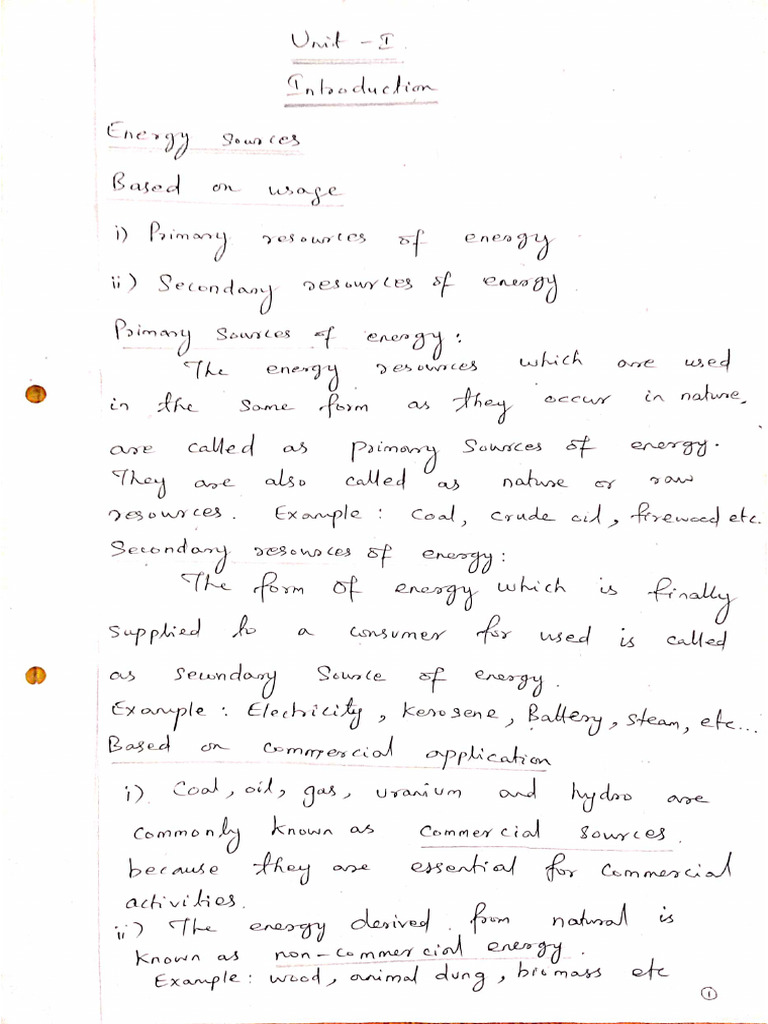 Unit - I.
Introduction
Energy sources
Based on usage
i) Primary resources of energy
ii) Secondary resources of energy
Primary sources of energy:
The energy resources which are used
in the same form as they occur in nature,
are called as primary sources of energy.
They are also called as nature or raw
resources. Example: Coal, crude oil, firewood etc.
Secondary resources of energy:
The form of energy which is finally
supplied to a consumer for used is called
as secondary source of energy.
Example: Electricity, kerosene, Battery, steam, etc...
Based on commercial application
i) Coal, oil, gas, uranium and hydro are
commonly known as commercial sources.
because they are essential for commercial
activities.
ii) The energy derived from natural is
known as non-commercial energy.
Example: wood, animal dung, biomass etc
1